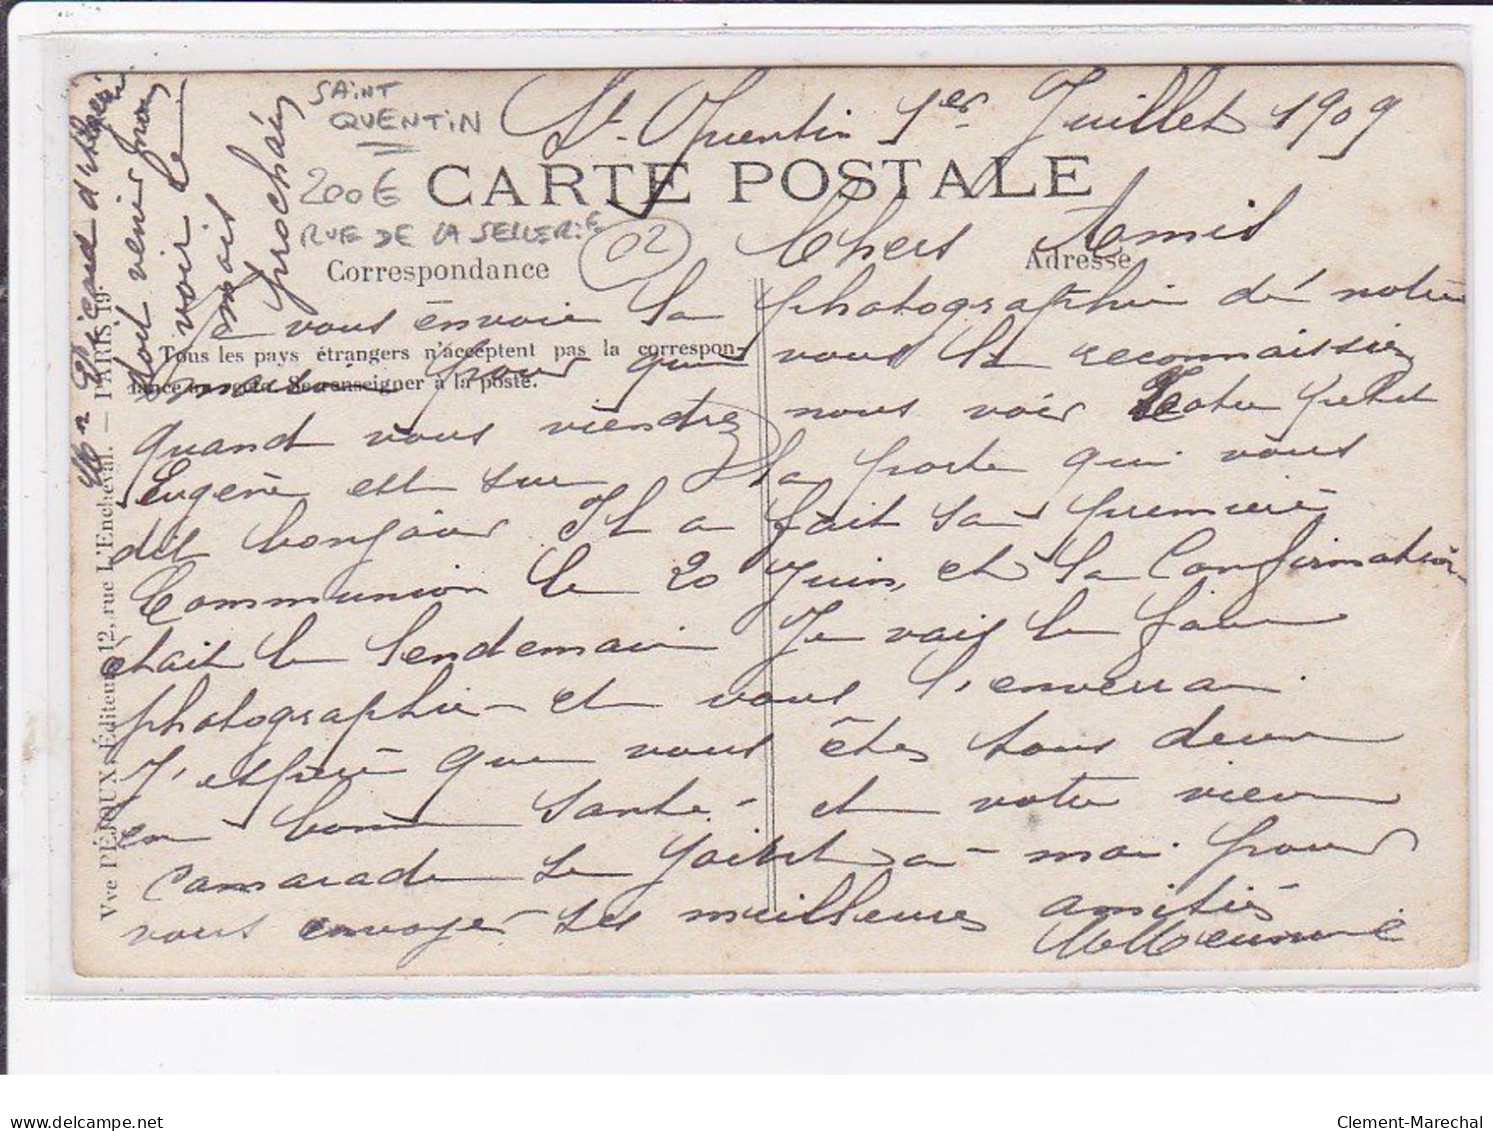 SAINT
QUENTIN
200€
RUE DE LA SELLERIE
02
St. Quentin 1er Juillet 1909
CARTE POSTALE
Chers Amis
Correspondance
Adresse
Je vous envoie la photographie de notre
Tous les pays étrangers n'acceptent pas la correspon-
maison pour que vous la reconnaissiez
dance au recto. Se renseigner à la poste.
quand vous viendrez nous voir Notre petit
Eugène est sur la porte qui vous
dit bonjour Il a fait sa première
Communion le 20 Juin, et la Confirmation
était le lendemain Je vais le faire
photographier et vous l'enverrai.
J'espère que vous êtes tous deux
en bonne santé et votre vieux
camarade se joint à moi pour
vous envoyer ses meilleures amitiés
doit venir nous
voir le
mois
prochain
Vve PÉJOUX, Éditeur, 12, rue L'Encheval. — PARIS, 19.
Clement-Marechal